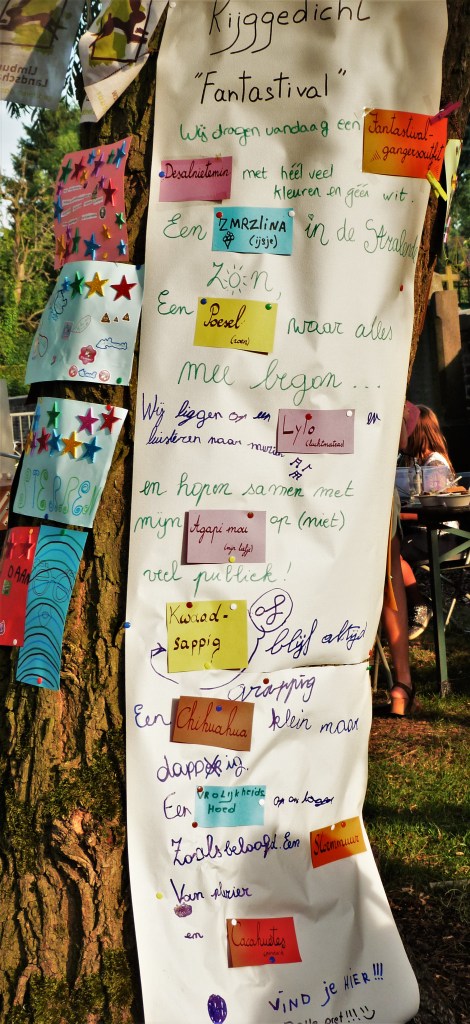 Rijggedicht
"Fantastival"
Wij dragen vandaag een
Fantastival-
gangersoutfit
Desalnietemin
met héél veel
kleuren en géén wit.
Een
ZMRZLINA
(ijsje)
in de Stralende
Zon,
Een
Poesel
(zoen)
waar alles
mee begon...
Wij liggen op een
Lylo
(luchtmatras)
en
luisteren naar
en hopen samen met
mijn
Agapi mou
(mijn liefje)
op (niet)
veel publiek!
Kwaad-
sappig
of
blijf altijd
grappig
Een
Chihuahua
klein maar
dapp ig.
Een
VROLIJKHEIDS
HOED
op ons
Zoals beloofd. Een
Van plezier
en
Cacahuetes
VIND je HIER!!!
STERREN
DAAN
Limbu
Landscha